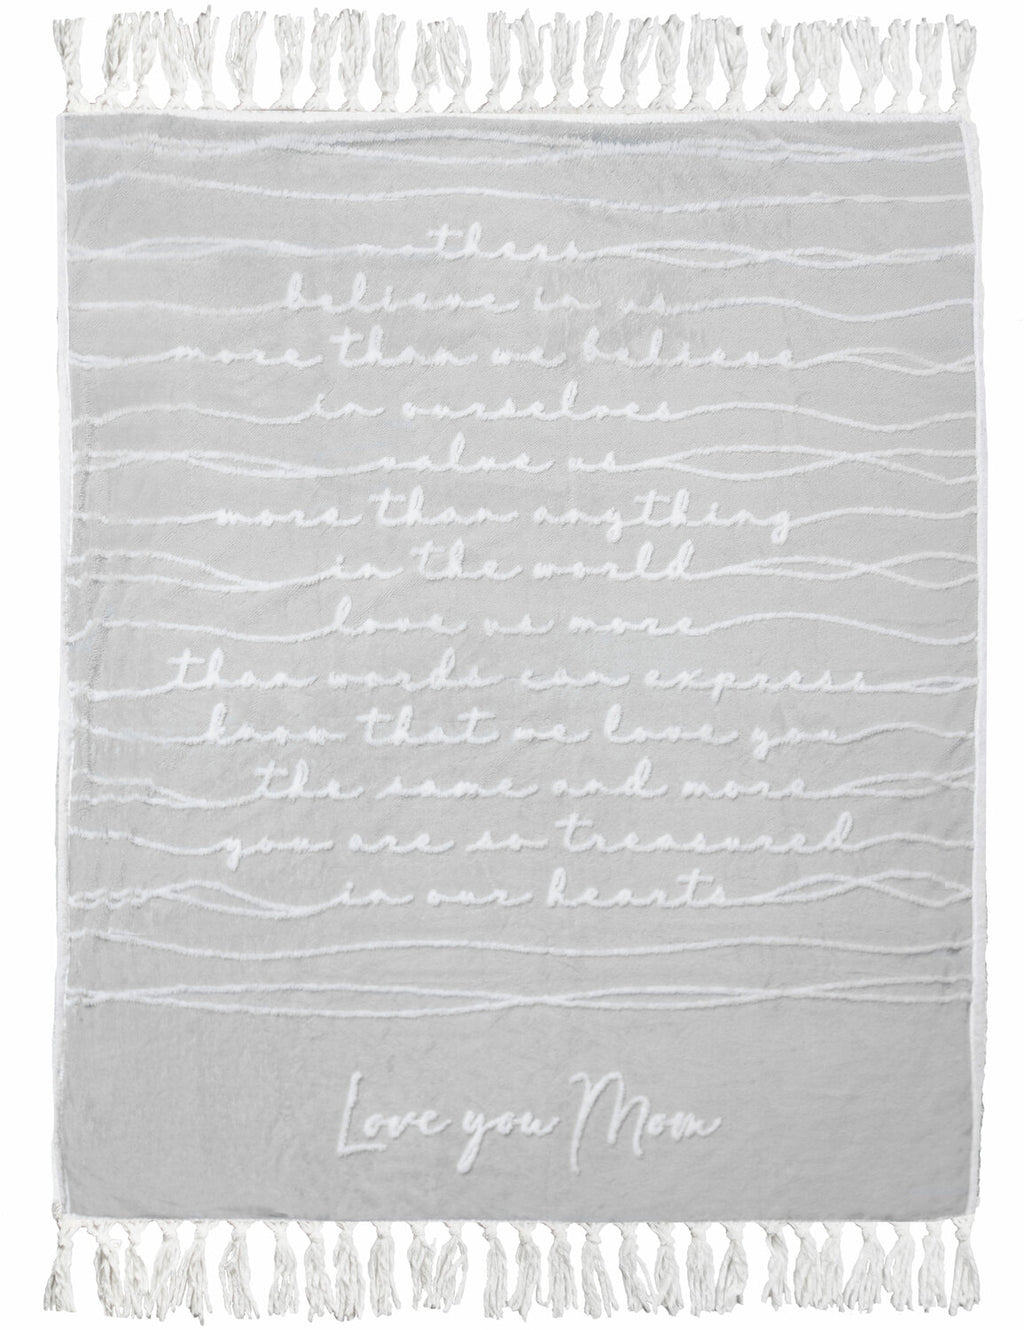 mothers
believe in us
more than we believe
in ourselves
value us
more than anything
in the world
love us more
than words can express
know that we love you
the same and more
you are so treasured
in our hearts
Love you Mom